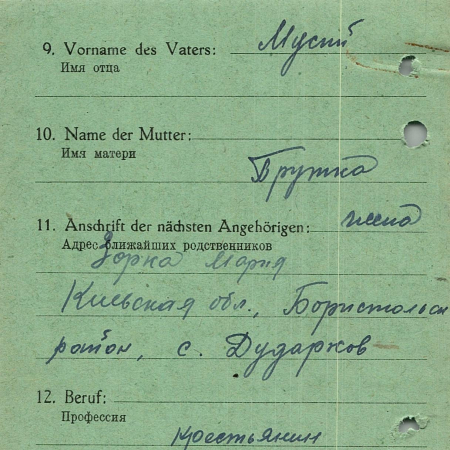 9. Vorname des Vaters: Мусий
Имя отца
10. Name der Mutter:
Имя матери
11. Anschrift der nächsten Angehörigen: жена
Адрес ближайших родственников
Зорка Мария
Киевская обл., Бориспольск
район, с. Дударков
12. Beruf:
Профессия
Крестьянин